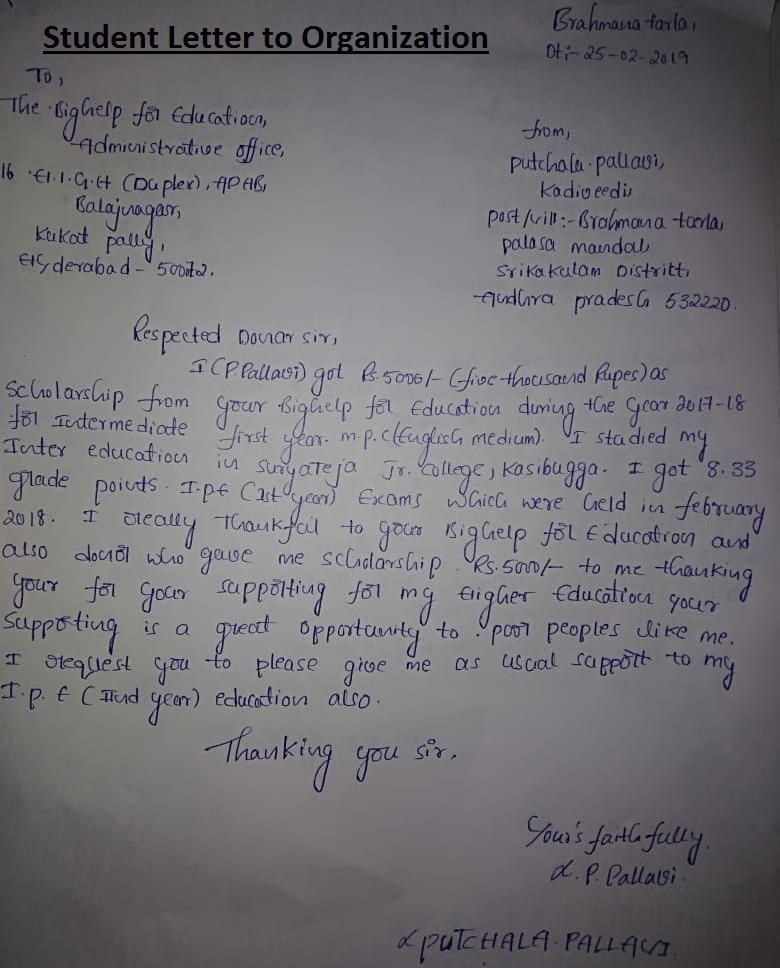 Student Letter to Organization
Brahmana tarla,
Dt:- 25-02-2019
To,
The Bighelp for Education,
Administrative office,
16 H.I.G.H (Duplex), APHB,
Balajnagar,
Kukat pally,
Hyderabad - 50072.
from,
putchala. pallavi,
Kadiveedi,
post/vill:- Brahmana tarla,
palasa mandal,
Srikakulam District,
Andhra pradesh 532220.
Respected Donar sir,
I (P.Pallavi) got Rs. 5000/- (five-thousand Rupes) as
scholarship from your Bighelp for Education during the year 2017-18
for Intermediate first year. m.p.c (English medium). I studied my
Inter education in Suryateja Jr. College, Kasibugga. I got 8.33
glade points. I.p.E (Ist year) Exams which were held in february
2018. I really thankful to your Bighelp for Education and
also donor who gave me scholarship Rs. 5000/- to me thanking
your for your supporting for my Higher Education your
Supporting is a great opportunity to poor peoples like me.
I request you to please give me as usual support to my
I.p.E (IInd year) education also.
Thanking you sir.
Your's faithfully.
P. Pallavi.
PUTCHALA. PALLAVI.